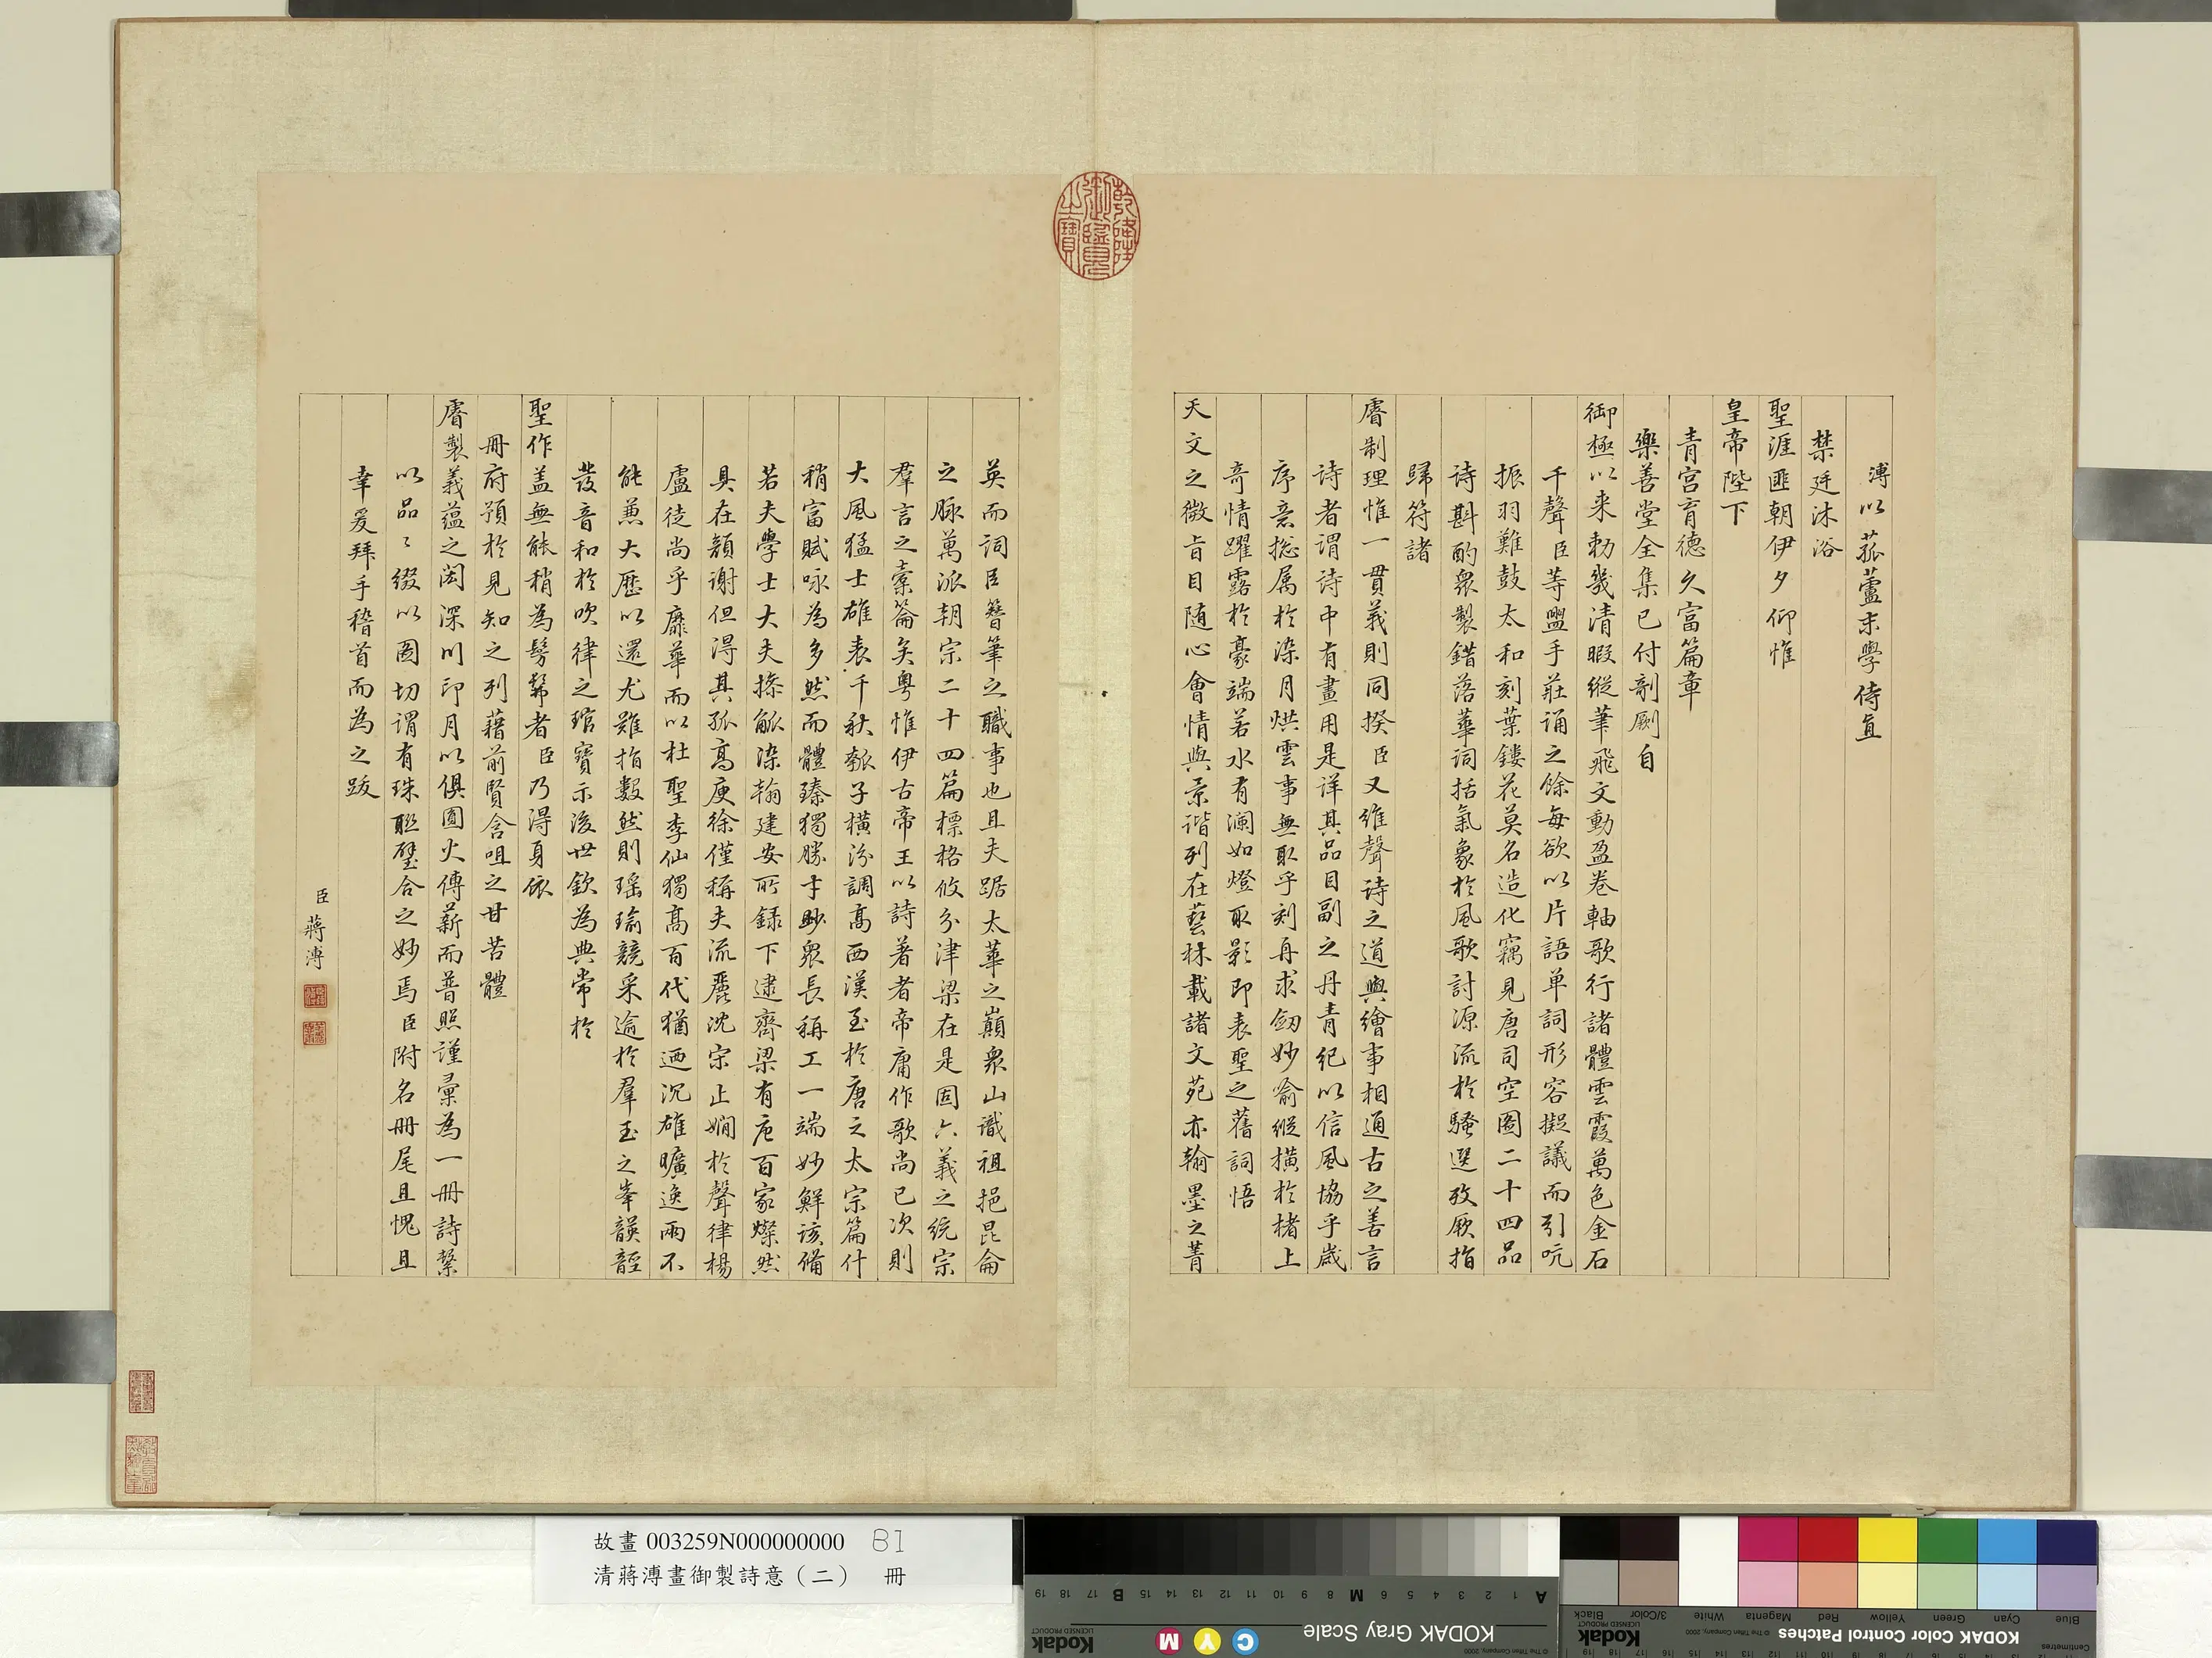 溥以菰蘆末學侍直
禁廷沐浴
聖涯匪朝伊夕仰惟
皇帝陛下
青宮育德久富篇章
樂善堂全集已付剞劂自
御極以来勅幾清暇縱筆飛文動盈卷軸歌行諸體雲霞萬色金石
千聲臣等盥手莊誦之餘每欲以片語单詞形容擬議而引吭
振羽難鼓太和刻葉鏤花莫名造化竊見唐司空圖二十四品
诗斟酌衆製錯落華詞括氣象於風歌討源流於騷選攷厥指
歸符諸
睿制理惟一貫義則同揆臣又維聲诗之道與繪事相通古之善言
诗者谓诗中有畫用是详其品目副之丹青紀以信風協乎歲
序意揔属於染月烘雲事無取乎刻舟求劒妙喻縱横於楮上
奇情躍露於豪端若水有澜如燈取影即表聖之舊詞悟
天文之微旨目随心會情與景谐列在藝林載諸文苑亦翰墨之菁
英而词臣簪筆之職事也且夫踞太華之巔衆山識祖挹昆侖
之脉萬派朝宗二十四篇標格攸分津梁在是固六義之统宗
羣言之橐籥矣粤惟伊古帝王以詩著者帝庸作歌尚已次則
大風猛士雄表千秋瓠子横汾調高西漢至於唐之太宗篇什
稍富賦咏為多然而體臻獨勝才眇衆長稱工一端妙鮮该備
若夫學士大夫搽觚染翰建安所録下逮齊梁有唐百家燦然
具在顏谢但得其孤高庾徐僅稱夫流麗沈宋止嫺於聲律楊
盧徒尚乎靡華而以杜聖李仙獨高百代猶迺沉雄曠逸兩不
能兼大歷以還尤難指數然則瑶瑜競采逾於羣玉之峯韺韶
發音和於吹律之琯寶示後世欽為典常於
聖作盖無能稍為髣髴者臣乃得身依
冊府預於見知之列藉前賢含咀之甘苦體
睿製義蕴之闳深川印月以俱圓火傳薪而普照謹彙為一冊詩繫
以品〻缀以圖切谓有珠聯璧合之妙焉臣附名册尾且愧且
幸爰拜手稽首而為之跋
臣蔣溥
乾隆御覽之寶
故畫003259N000000000 B1
清蔣溥畫御製詩意（二） 冊
KODAK Gray Scale
Kodak
LICENSED PRODUCT
C Y M
A 1 2 3 4 5 6 M 8 9 10 11 12 13 14 15 B 17 18 19
© The Tiffen Company, 2000
KODAK Color Control Patches
Kodak
LICENSED PRODUCT
© The Tiffen Company, 2000
Blue Cyan Green Yellow Red Magenta White 3/Color Black
Centimetres